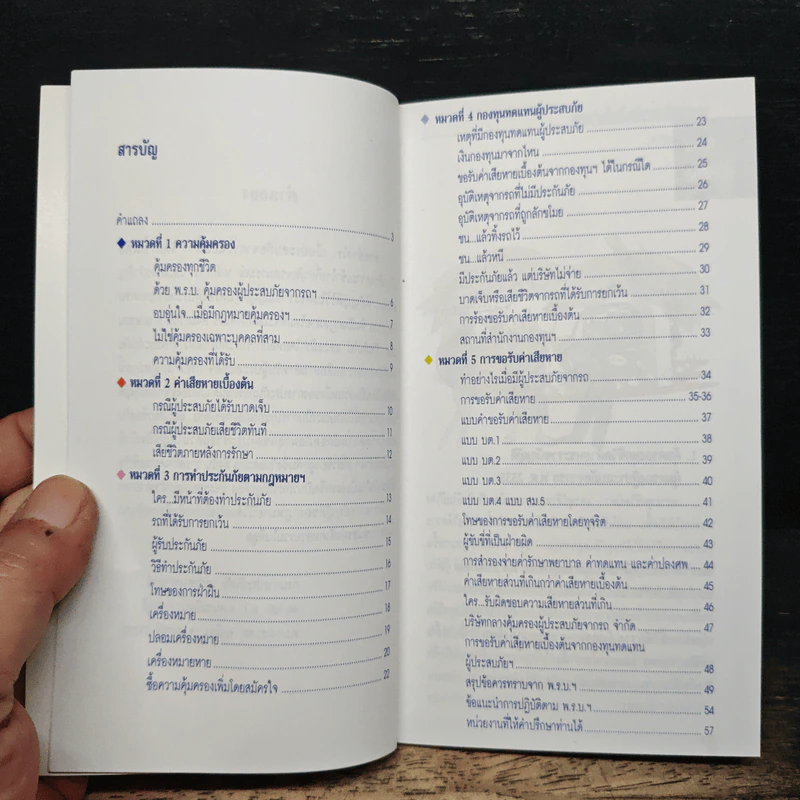 สารบัญ
คำแถลง 3
หมวดที่ 1 ความคุ้มครอง
คุ้มครองทุกชีวิต
ด้วย พ.ร.บ. คุ้มครองผู้ประสบภัยจากรถฯ 6
อบอุ่นใจ...เมื่อมีกฎหมายคุ้มครองฯ 7
ไม่ใช่คุ้มครองเฉพาะบุคคลที่สาม 8
ความคุ้มครองที่ได้รับ 9
หมวดที่ 2 ค่าเสียหายเบื้องต้น
กรณีผู้ประสบภัยได้รับบาดเจ็บ 10
กรณีผู้ประสบภัยเสียชีวิตทันที 11
เสียชีวิตภายหลังการรักษา 12
หมวดที่ 3 การทำประกันภัยตามกฎหมายฯ
ใคร...มีหน้าที่ต้องทำประกันภัย 13
รถที่ได้รับการยกเว้น 14
ผู้รับประกันภัย 15
วิธีทำประกันภัย 16
โทษของการฝ่าฝืน 17
เครื่องหมาย 18
ปลอมเครื่องหมาย 19
เครื่องหมายหาย 20
ซื้อความคุ้มครองเพิ่มโดยสมัครใจ 22
หมวดที่ 4 กองทุนทดแทนผู้ประสบภัย
เหตุที่มีกองทุนทดแทนผู้ประสบภัย 23
เงินกองทุนมาจากไหน 24
ขอรับค่าเสียหายเบื้องต้นจากกองทุนฯ ได้ในกรณีใด 25
อุบัติเหตุจากรถที่ไม่มีประกันภัย 26
อุบัติเหตุจากรถที่ถูกลักขโมย 27
ชน...แล้วทิ้งรถไว้ 28
ชน...แล้วหนี 29
มีประกันภัยแล้ว แต่บริษัทไม่จ่าย 30
บาดเจ็บหรือเสียชีวิตจากรถที่ได้รับการยกเว้น 31
การร้องขอรับค่าเสียหายเบื้องต้น 32
สถานที่สำนักงานกองทุนฯ 33
หมวดที่ 5 การขอรับค่าเสียหาย
ทำอย่างไรเมื่อมีผู้ประสบภัยจากรถ 34
การขอรับค่าเสียหาย 35-36
แบบคำขอรับค่าเสียหาย 37
แบบ บต.1 38
แบบ บต.2 39
แบบ บต.3 40
แบบ บต.4 แบบ สม.5 41
โทษของการขอรับค่าเสียหายโดยทุจริต 42
ผู้ขับขี่ที่เป็นฝ่ายผิด 43
การสำรองจ่ายค่ารักษาพยาบาล ค่าทดแทน และค่าปลงศพ 44
ค่าเสียหายส่วนที่เกินกว่าค่าเสียหายเบื้องต้น 45
ใคร...รับผิดชอบความเสียหายส่วนที่เกิน 46
บริษัทกลางคุ้มครองผู้ประสบภัยจากรถ จำกัด 47
การขอรับค่าเสียหายเบื้องต้นจากกองทุนทดแทน
ผู้ประสบภัยฯ 48
สรุปข้อควรทราบจาก พ.ร.บ.ฯ 49
ข้อแนะนำการปฏิบัติตาม พ.ร.บ.ฯ 54
หน่วยงานที่ให้คำปรึกษาท่านได้ 57